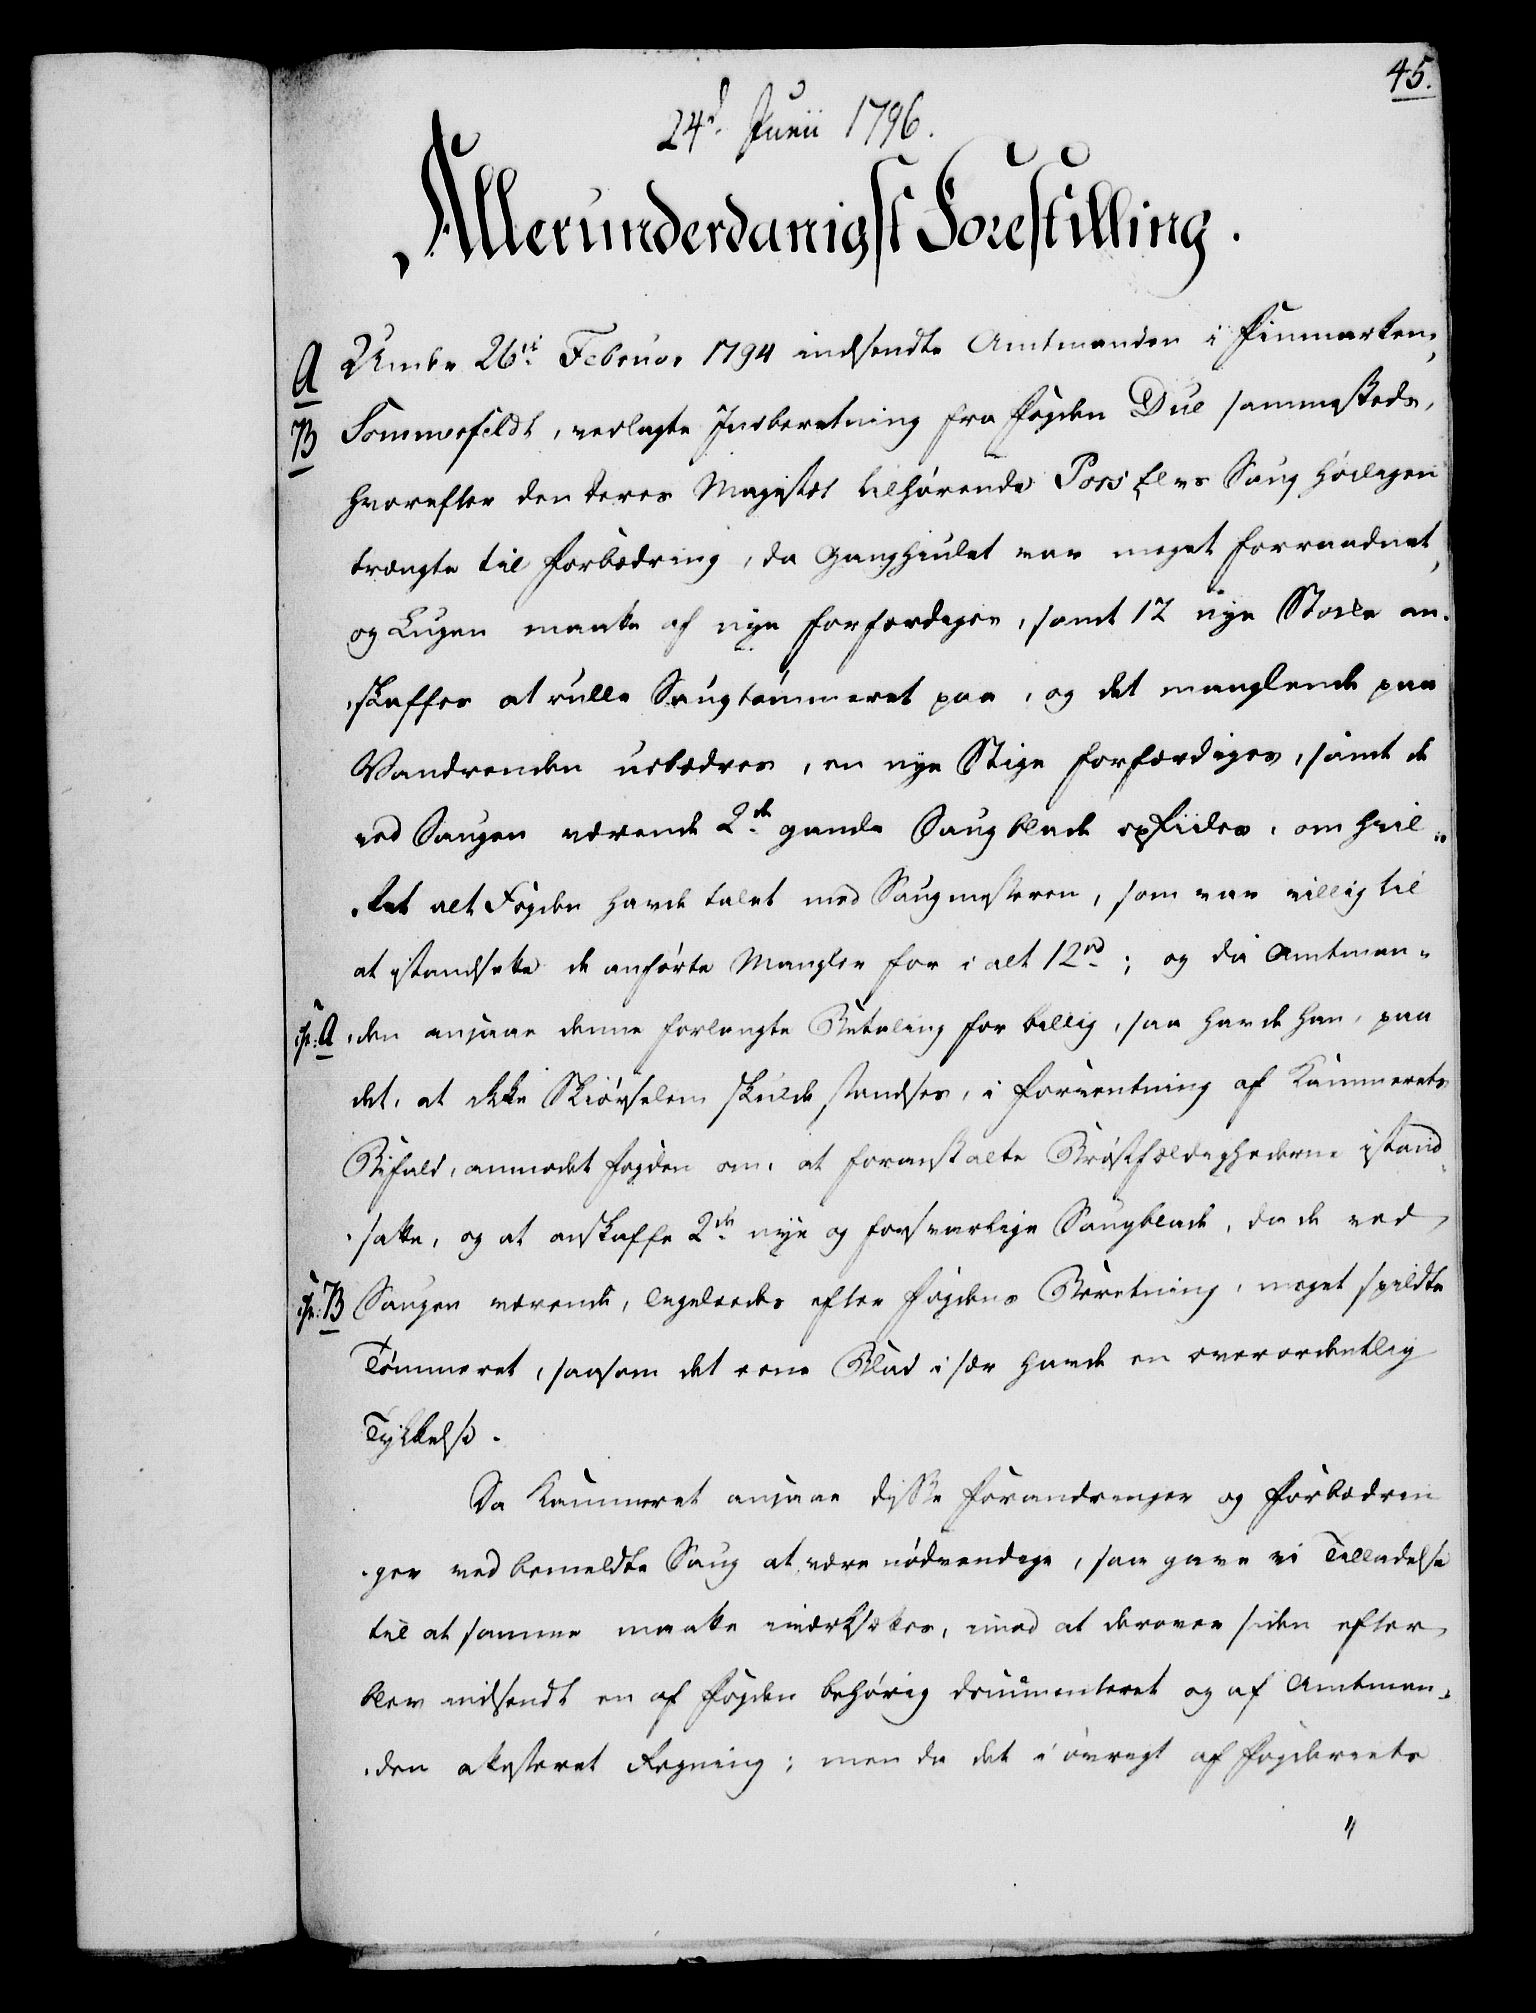 45.
24d. Junii 1796.
Allerunderdanigst Forestilling.
A Under 26de Februar 1794 indsendte Amtmanden i Finmarken,
B Sommerfeldt, vedlagte Indberetning fra Fogden Due sammesteds,
hvorefter den Deres Majestæt tilhørende Pors Elvs Saug høiligen
trængte til Forbedring, da Ganghiulet var meget forraadnet,
og Lugen maatte af nye forfærdiges, samt 12 nye Stokke an-
skaffes at rulle Saugtømmeret paa, og det manglende paa
Vandrenden udbedres, en nye Stige forfærdiges, samt de
ved Saugen værende 2de gamle Saugblade opfiiles, om hvil-
ket alt Fogden havde talet med Saugmesteren, som var villig til
at istandsætte de anførte Mangler for i alt 12rd; og da Amtman-
ijt: A den ansaae denne forlangte Betaling for billig, saa havde han, paa
det, at ikke Skiørselen skulde standses, i Forventning af Kammerets
Bifald, anmodet Fogden om, at foranstalte Brøstfældighederne istand-
satte, og at anskaffe 2de nye og forsvarlige Saugblade, da de ved
ijt: B Saugen værende, ligeledes efter Fogdens Beretning, meget spildte
Tømmeret, saasom det eene Blad i sær havde en overordentlig
Tykkelse.
Da Kammeret ansaae disse Forandringer og Forbedrin
-ger ved bemeldte Saug at være nødvendige, saa gave vi Tilladelse
til at samme maatte iværksættes, imod at derover siden efter
blev indsendt en af Fogden behørig documenteret og af Amtman-
-den attesteret Regning; men da det i øvrigt af Fogderiets
"